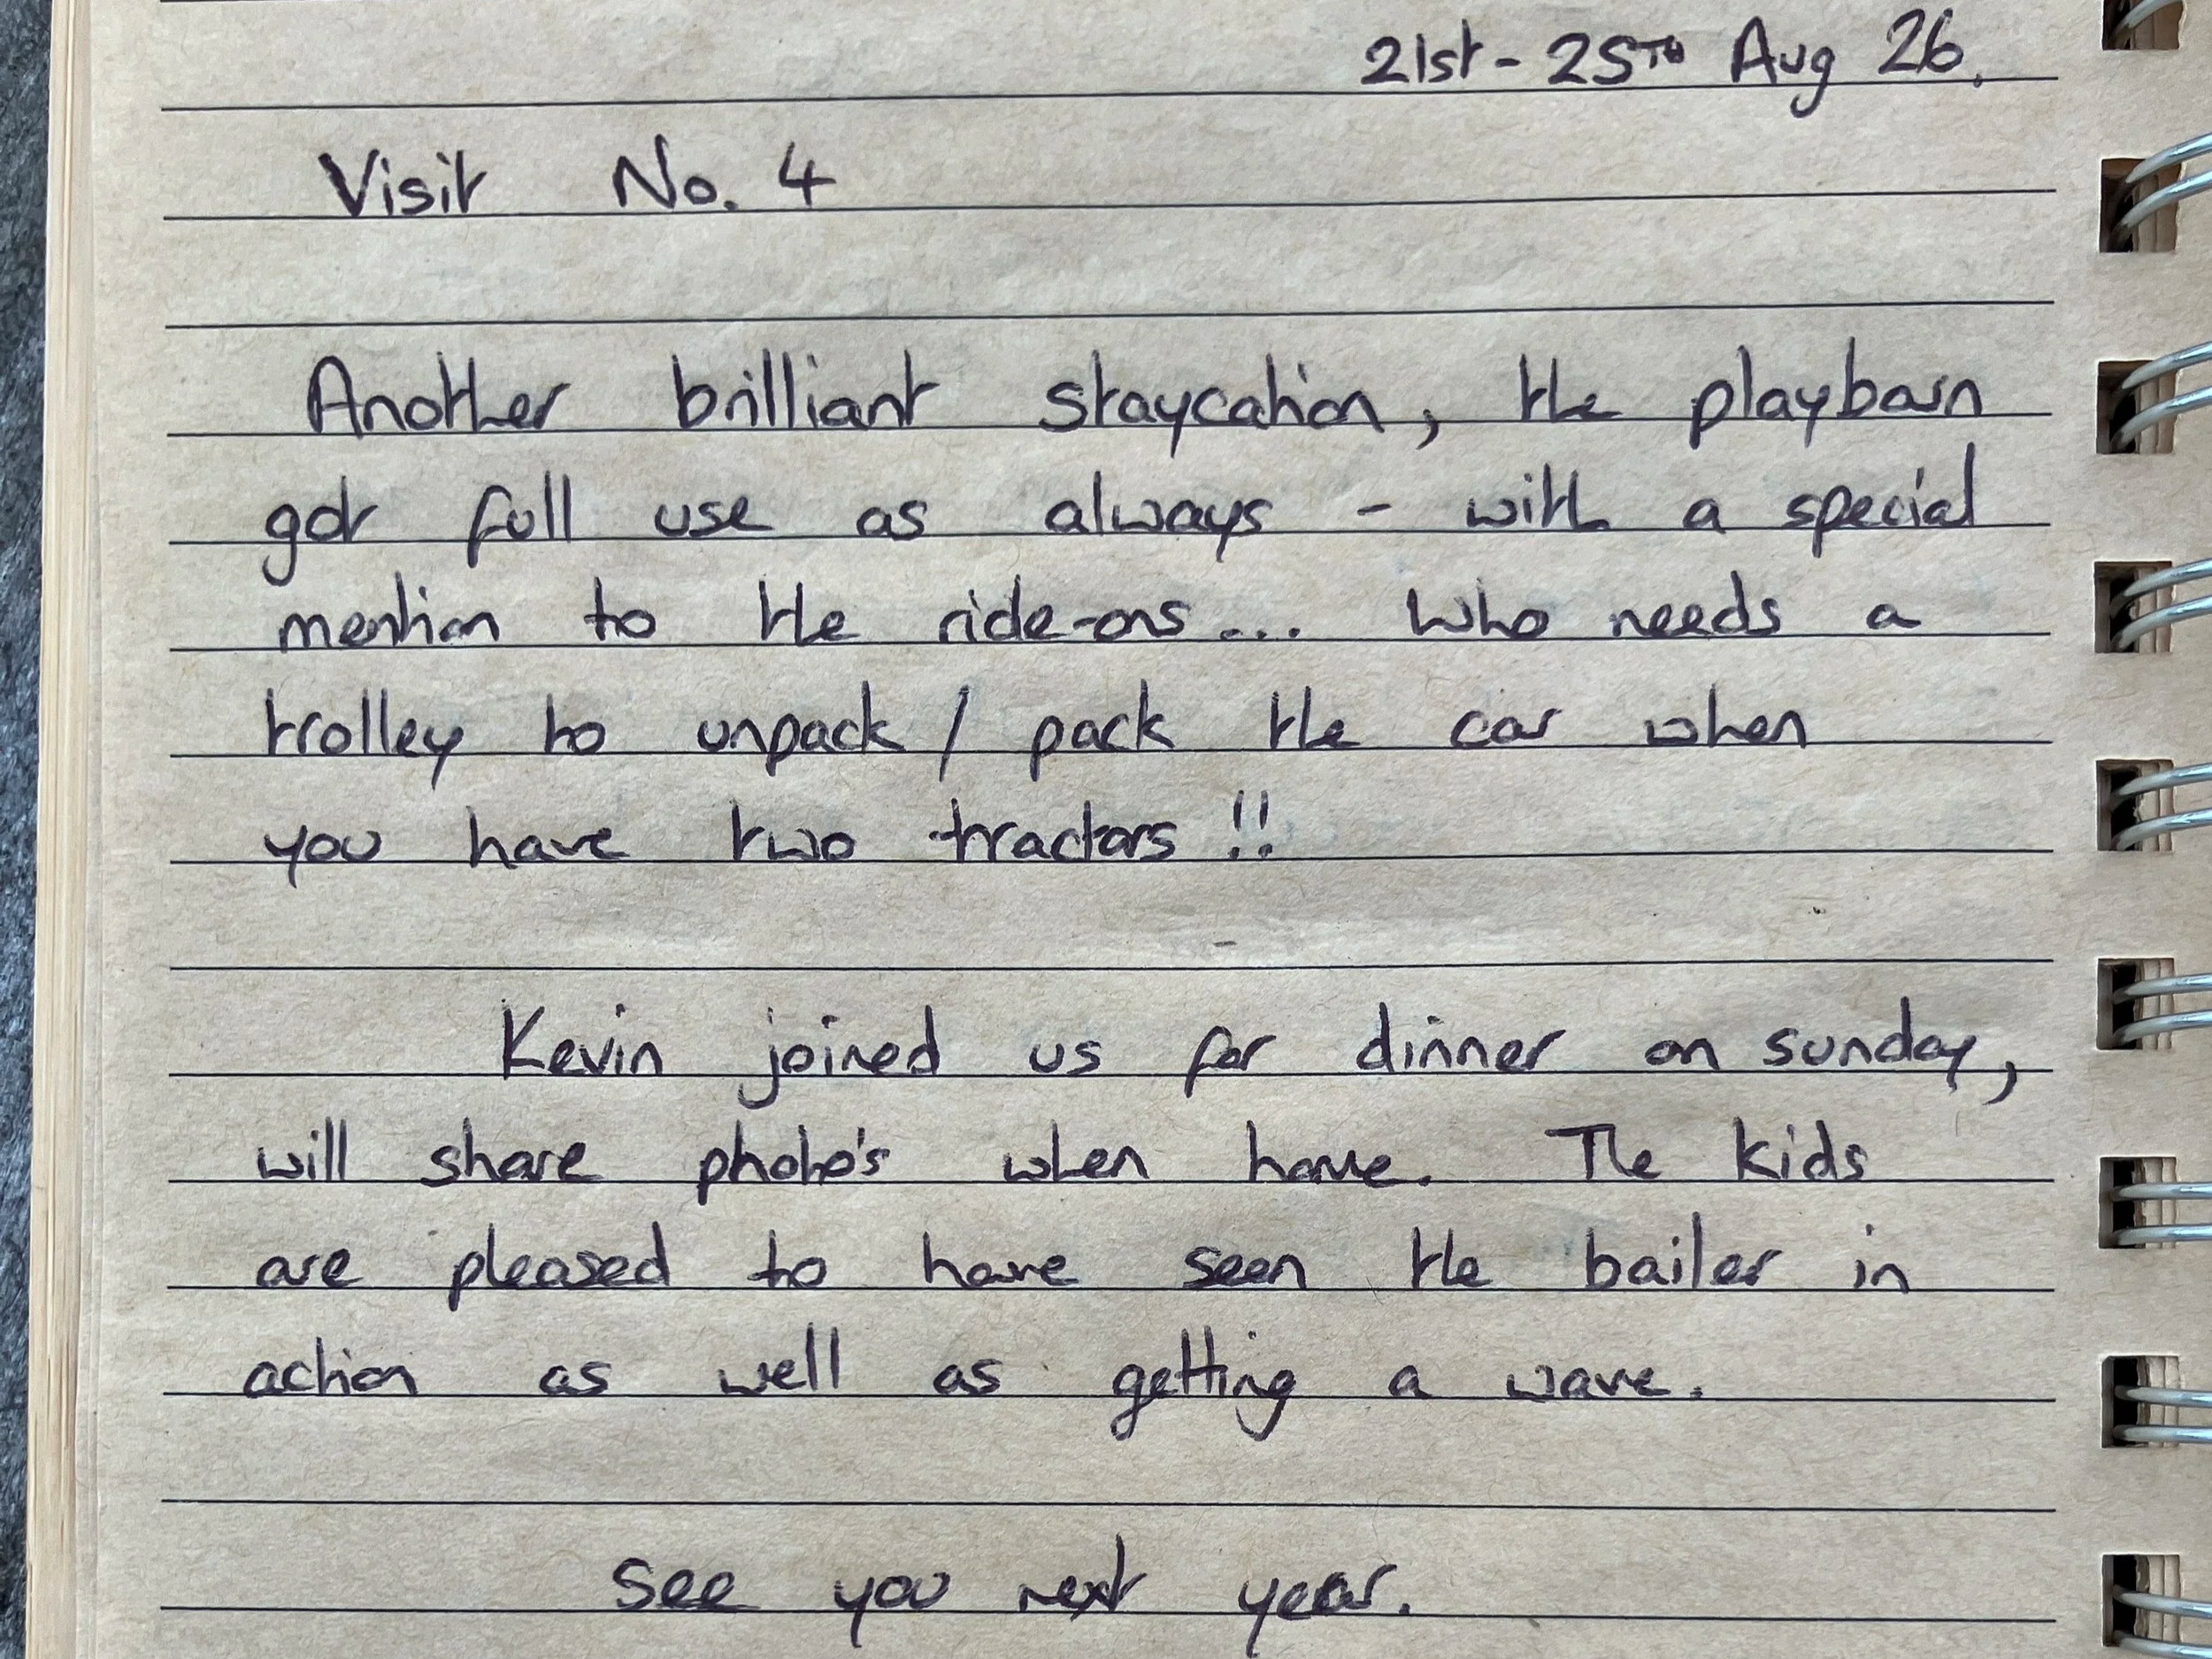 21st - 25TH Aug 26.
Visit No. 4
Another brilliant staycation, the playbarn
got full use as always - with a special
mention to the ride-ons... Who needs a
trolley to unpack / pack the car when
you have two tractors!!
Kevin joined us for dinner on sunday,
will share photo's when home. The kids
are pleased to have seen the bailer in
action as well as getting a wave.
See you next year.